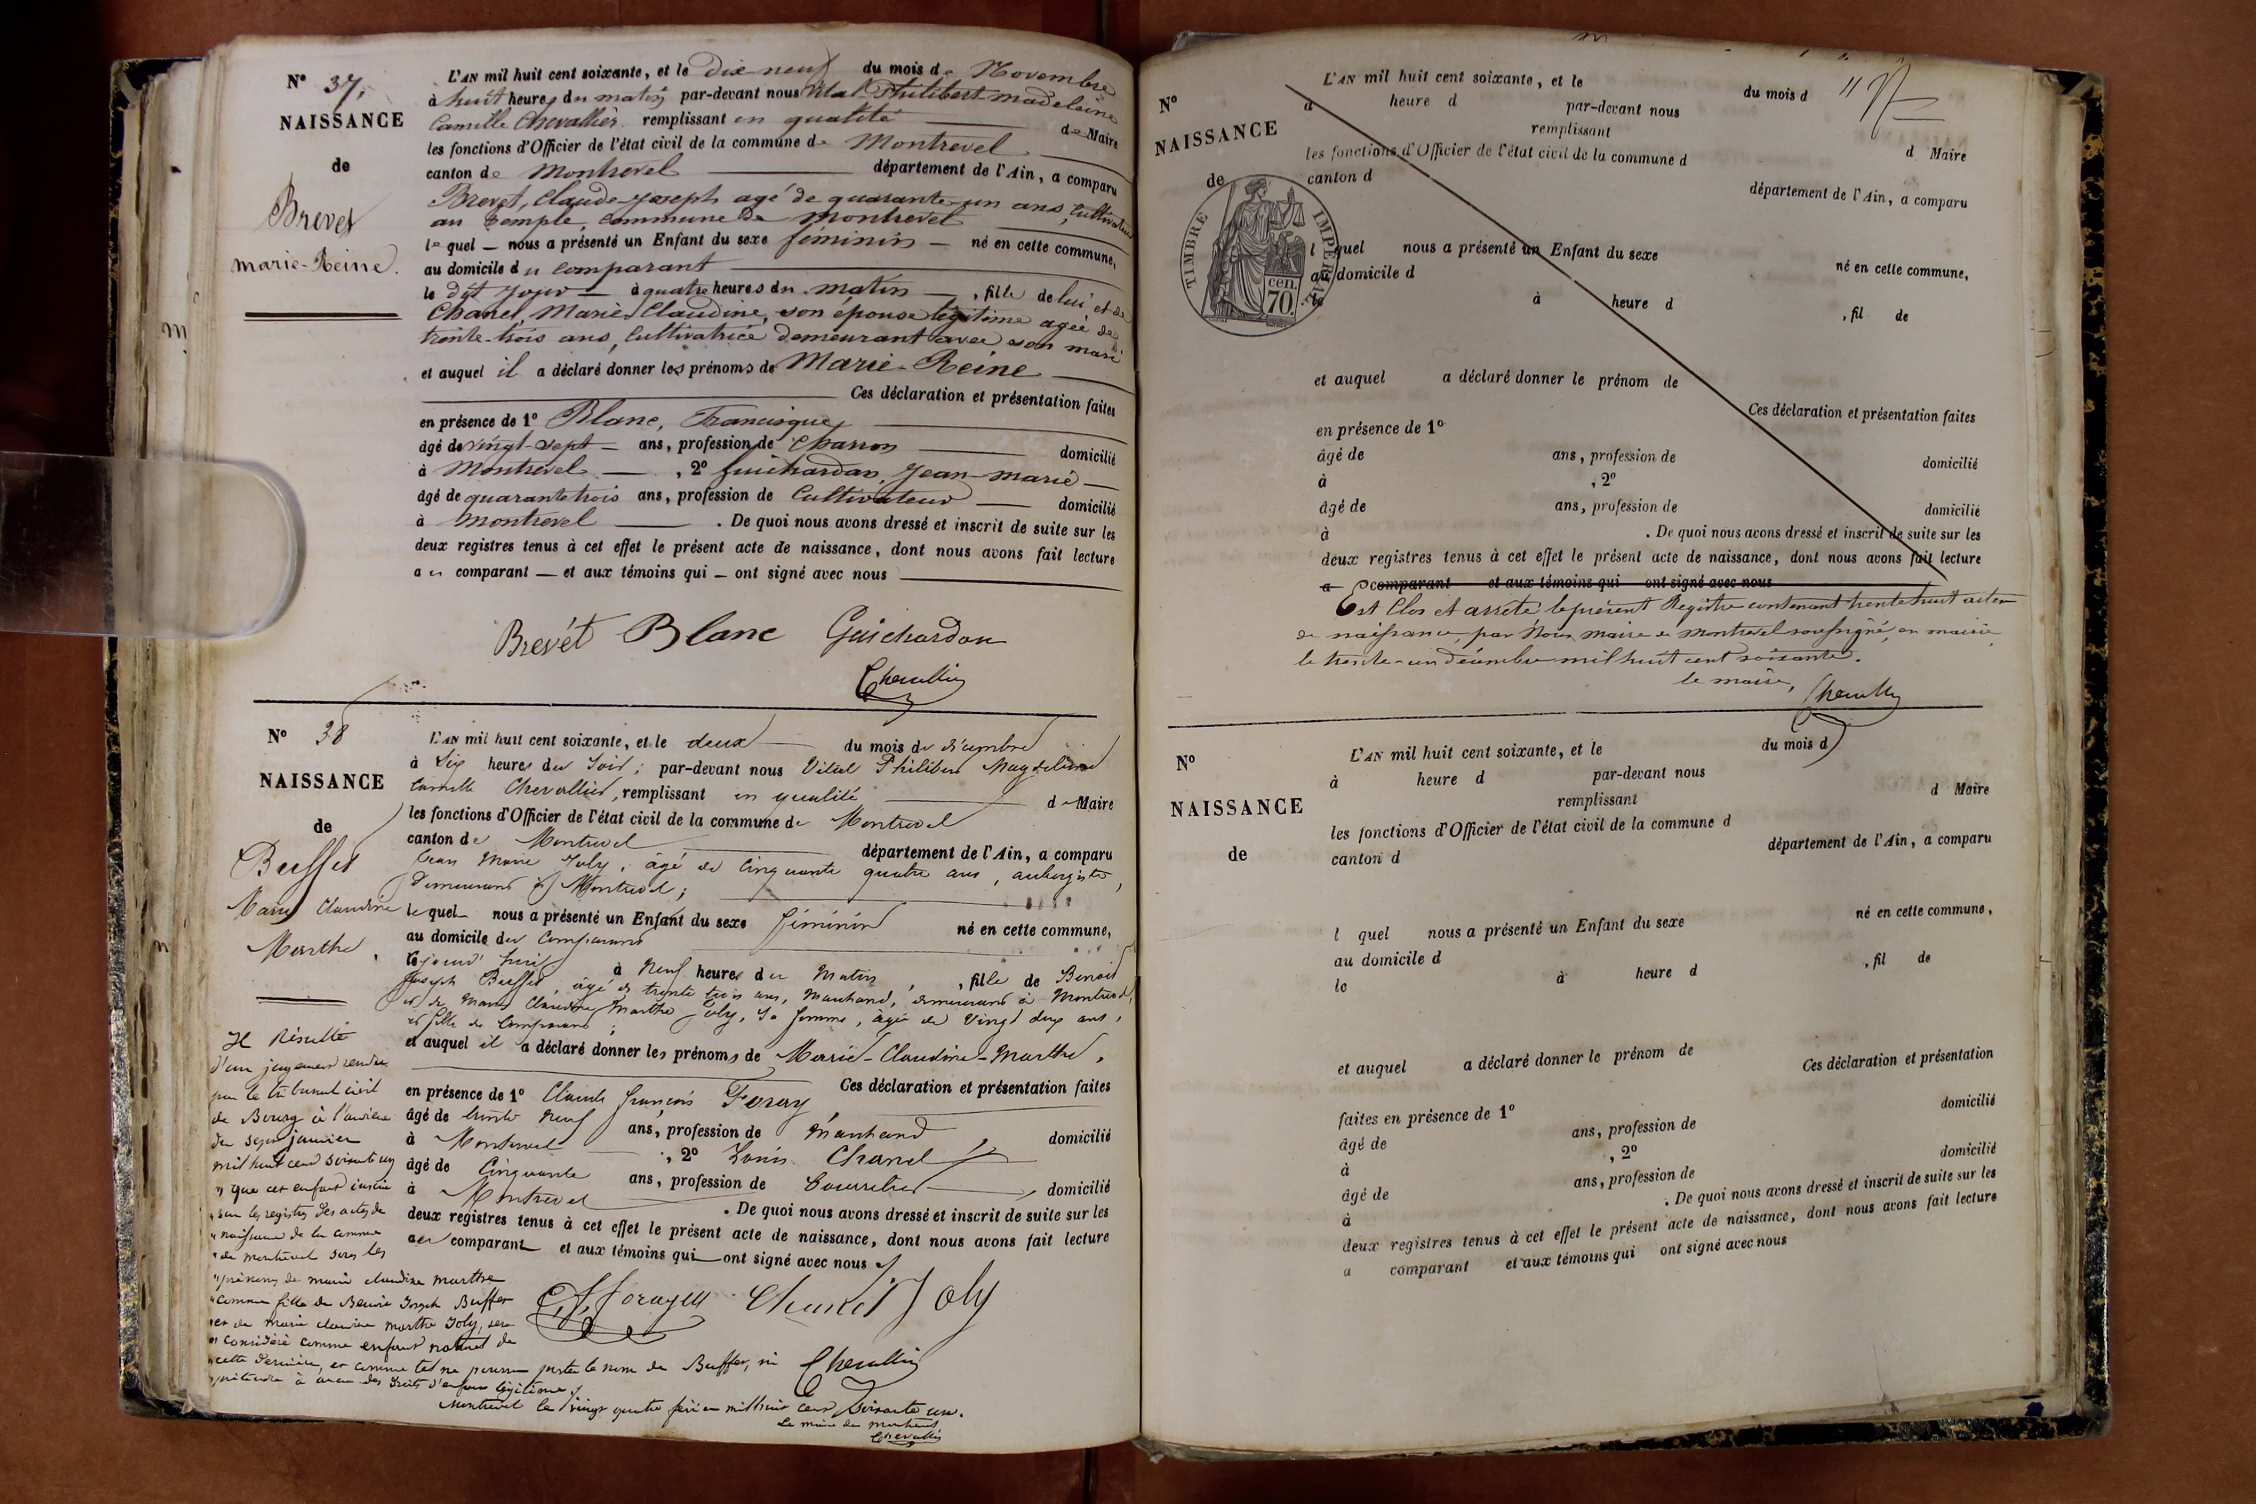 N° 37.
NAISSANCE
de
Brevet
marie-Reine.
L'AN mil huit cent soixante, et le dix neuf du mois de Novembre
à huit heures du matin par-devant nous Vital Philibert madeleine
Camille Chevallier remplissant en qualité de Maire
les fonctions d'Officier de l'état civil de la commune de Montrevel
canton de Montrevel département de l'Ain, a comparu
Brevet, Claude-Joseph agé de quarante-un ans, Cultivateur
au temple, commune de Montrevel
le quel nous a présenté un Enfant du sexe féminin né en cette commune,
au domicile du comparant
le dit jour à quatre heures du matin, fille de lui, et de
Chanel, Marie Claudine, son épouse légitime agée de
trente-trois ans, Cultivatrice demeurant avec son mari
et auquel il a déclaré donner les prénoms de Marie-Reine
Ces déclaration et présentation faites
en présence de 1° Blanc, Francisque,
âgé de vingt-sept ans, profession de Charron domicilié
à Montrevel, 2° Guichardan, Jean-marie
âgé de quarante trois ans, profession de Cultivateur domicilié
à Montrevel. De quoi nous avons dressé et inscrit de suite sur les
deux registres tenus à cet effet le présent acte de naissance, dont nous avons fait lecture
au comparant et aux témoins qui ont signé avec nous
Brevét Blanc Guichardan
Chevallier
N° 38
NAISSANCE
de
Buffet
Marie Claudine
Marthe.
L'AN mil huit cent soixante, et le deux du mois de décembre
à six heures du Soir; par-devant nous Vital Philibert Magdeleine
Camille Chevallier, remplissant en qualité de Maire
les fonctions d'Officier de l'état civil de la commune de Montrevel
canton de Montrevel département de l'Ain, a comparu
Jean Marie Joly, âgé de Cinquante quatre ans, aubergiste,
demeurant à Montrevel;
le quel nous a présenté un Enfant du sexe féminin né en cette commune,
au domicile du Comparant
cejourd'hui à Neuf heures du Matin, fille de Benoit
Joseph Buffet, âgé de trente trois ans, Marchand, demeurant à Montrevel,
et de Marie Claudine Marthe Joly, Sa femme, âgée de Vingt deux ans,
et fille du Comparant;
et auquel il a déclaré donner les prénoms de Marie-Claudine-Marthe.
Ces déclaration et présentation faites
en présence de 1° Claude françois Foray
âgé de trente Neuf ans, profession de Marchand domicilié
à Montrevel, 2° Louis Chanel
âgé de Cinquante ans, profession de Bourrelier domicilié
à Montrevel. De quoi nous avons dressé et inscrit de suite sur les
deux registres tenus à cet effet le présent acte de naissance, dont nous avons fait lecture
au comparant et aux témoins qui ont signé avec nous
Chanel Joly
Chevallier
Il Résulte
d'un jugement rendu
par le tribunal civil
de Bourg à l'audience
du sept janvier
mil huit cent soixante un
" que cet enfant inscrit
" sur les registres des actes de
" naissance de la commune
" de montrevel sous les
" prénoms de marie claudine marthe
" comme fille de Benoit Joseph Buffet
" et de marie claudine marthe Joly, sera
" considéré comme enfant naturel de
" cette dernière, et comme tel ne pourra porter le nom de Buffet, ni
" prétendre à aucun des droits d'enfant légitime.
Montrevel le vingt quatre mil huit cent Soixante un.
Le maire de montrevel
Chevallier
N°
NAISSANCE
de
TIMBRE IMPERIAL
cen.
70.
L'AN mil huit cent soixante, et le du mois d
a heure d par-devant nous
remplissant d Maire
les fonctions d'Officier de l'état civil de la commune d
canton d département de l'Ain, a comparu
l quel nous a présenté un Enfant du sexe né en cette commune,
au domicile d
le à heure d, fil de
et auquel a déclaré donner le prénom de
Ces déclaration et présentation faites
en présence de 1°
âgé de ans, profession de domicilié
à , 2°
âgé de ans, profession de domicilié
à . De quoi nous avons dressé et inscrit de suite sur les
deux registres tenus à cet effet le présent acte de naissance, dont nous avons fait lecture
a comparant et aux témoins qui ont signé avec nous
Est Clos et arrêté le présent Registre contenant trente huit actes
de naissance, par Nous Maire de Montrevel soussigné, en mairie,
le trente-un décembre mil huit cent soixante.
le maire, Chevallier
N°
NAISSANCE
de
L'AN mil huit cent soixante, et le du mois d
à heure d par-devant nous
remplissant d Maire
les fonctions d'Officier de l'état civil de la commune d
canton d département de l'Ain, a comparu
l quel nous a présenté un Enfant du sexe né en cette commune,
au domicile d
le à heure d, fil de
et auquel a déclaré donner le prénom de
Ces déclaration et présentation
faites en présence de 1°
âgé de ans, profession de domicilié
à , 2°
âgé de ans, profession de domicilié
à . De quoi nous avons dressé et inscrit de suite sur les
deux registres tenus à cet effet le présent acte de naissance, dont nous avons fait lecture
a comparant et aux témoins qui ont signé avec nous